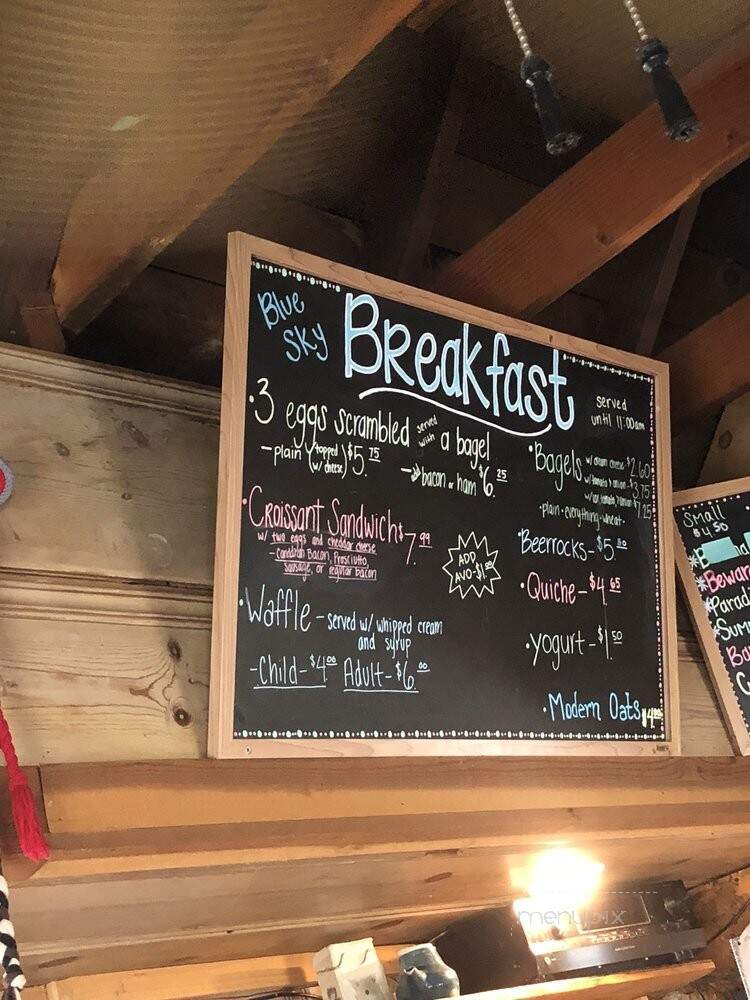 Blue
Sky
Breakfast
served
until 11:00am
·3 eggs scrambled served with a bagel
-plain (topped w/ cheese) $5.75
-bacon or ham $6.25
·Croissant Sandwich $7.99
w/ two eggs and cheddar cheese
-Canadian Bacon, Prosciutto,
Sausage, or regular bacon
ADD
AVO-$1.00
·Waffle - served w/ whipped cream
and syrup
-Child-$4.00 Adult-$6.00
·Bagels w/ cream cheese-$2.60
w/ tomato & onion-$3.75
$7.25
-plain·everything·wheat-
·Beerrocks-$5.50
·Quiche-$4.65
·yogurt-$1.50
·Modern Oats
Small
$4.50
menupix